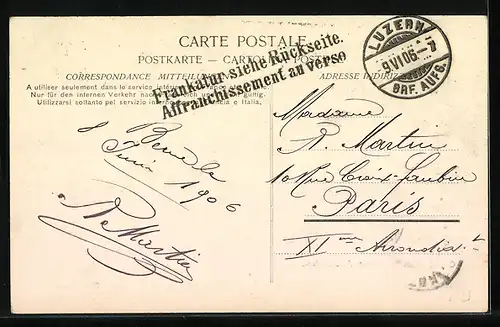 CARTE POSTALE
POSTKARTE - CARTOLINA POSTALE
CORRESPONDANCE MITTEILUNGEN
ADRESSE INDIRIZZO
A utiliser seulement dans le service
Nur für den internen Verkehr
Utilizzarsi soltanto pel servizio e Italia,
Frankatur siehe Rückseite.
Affranchissement au verso
LUZERN
9 VI 06 - 7
BRF. AUFG.
Berne le
8 Juin 1906
R. Martin
Madame
R. Martin
10 Rue Croix-Jaubin
Paris
XI me